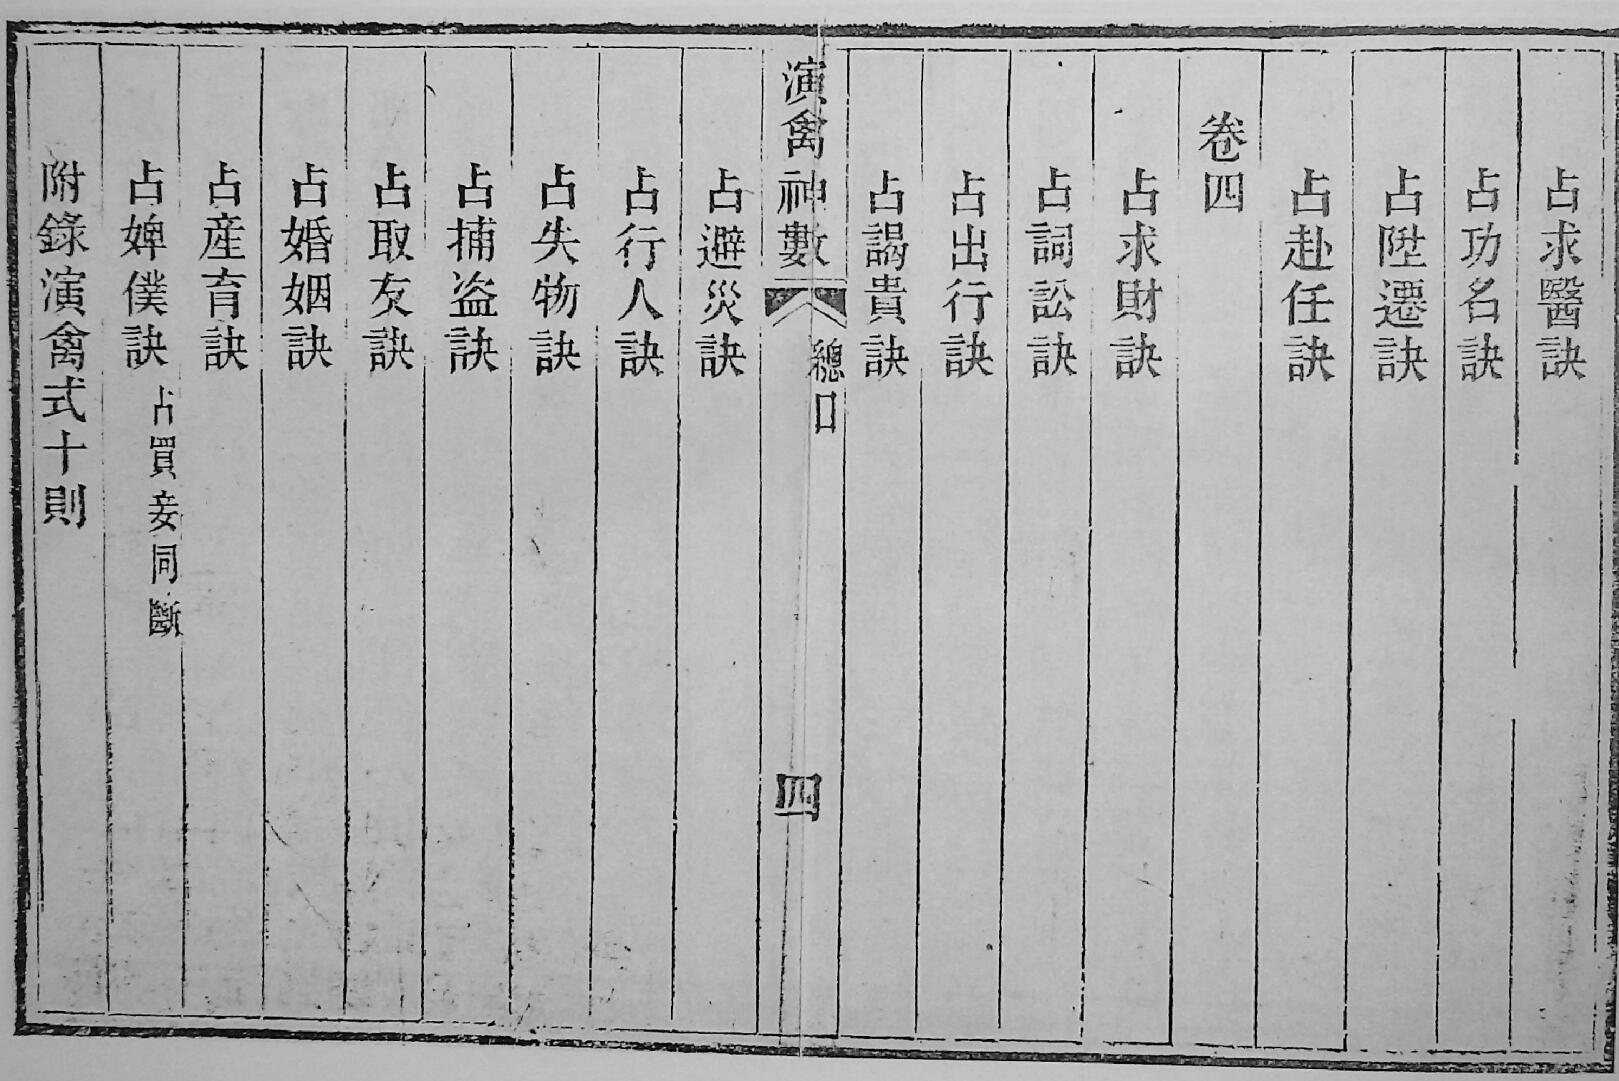 占求醫訣
占功名訣
占陞遷訣
占赴任訣
卷四
占求財訣
占詞訟訣
占出行訣
占謁貴訣
演禽神數
總目
四
占避災訣
占行人訣
占失物訣
占捕盜訣
占取友訣
占婚姻訣
占產育訣
占婢僕訣 占買妾同斷
附錄演禽式十則